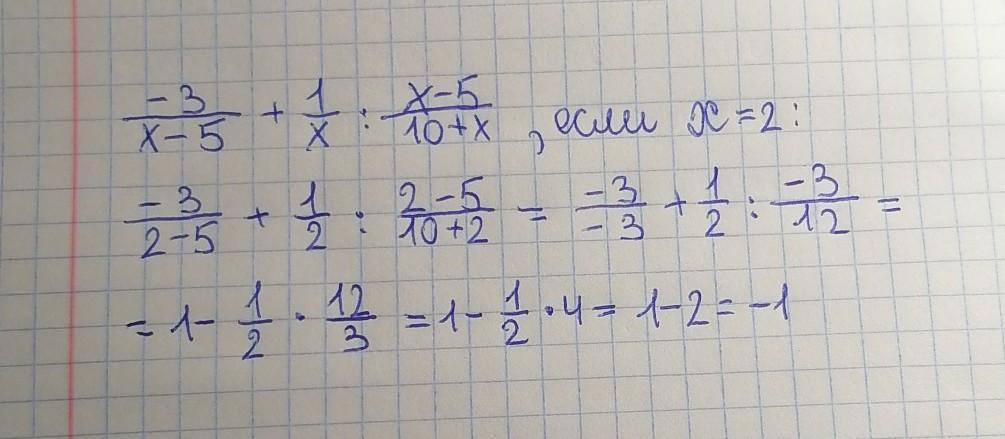 -3/(x-5) + 1/x : (x-5)/(10+x), если x=2:
-3/(2-5) + 1/2 : (2-5)/(10+2) = -3/-3 + 1/2 : -3/12 =
= 1 - 1/2 · 12/3 = 1 - 1/2 · 4 = 1-2 = -1